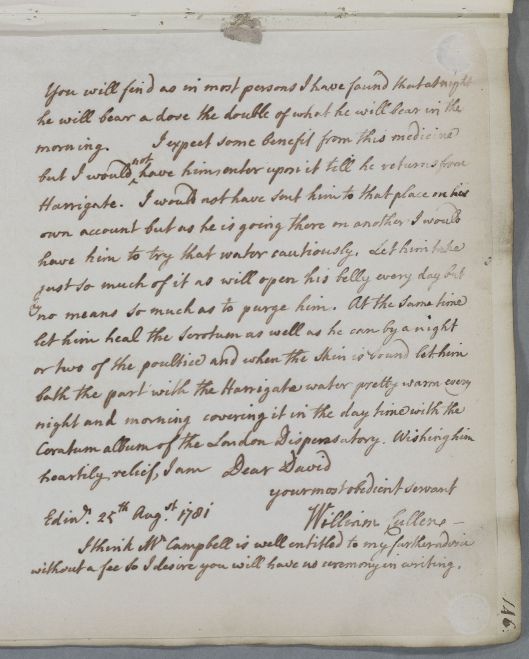 You will find as in most persons I have found that at night
he will bear a dose the double of what he will bear in the
morning. I expect some benefit from this medicine
but I would not have him enter upon it till he returns from
Harrigate. I would not have sent him to that place on his
own account but as he is going there on another I would
have him to try that water cautiously. Let him take
just so much of it as will open his belly every day but
by no means so much as to purge him. At the same time
let him heal the scrotum as well as he can by a night
or two of the poultice and when the skin is sound let him
bath the part with the Harrigate water pretty warm every
night and morning covering it in the day time with the
Ceratum album of the London Dispensatory. Wishing him
heartily relief, I am Dear David
your most obedient servant
Edinr. 25th Augst. 1781
William Cullen
I think Mr. Campbell is well entitled to my further advice
without a fee so I desire you will have no ceremony in writing.
146.